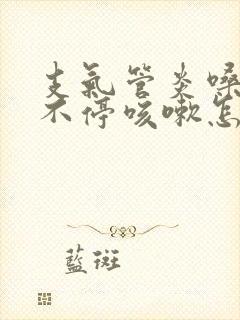 支氣管炎嗓
不停咳嗽怎
藍斑